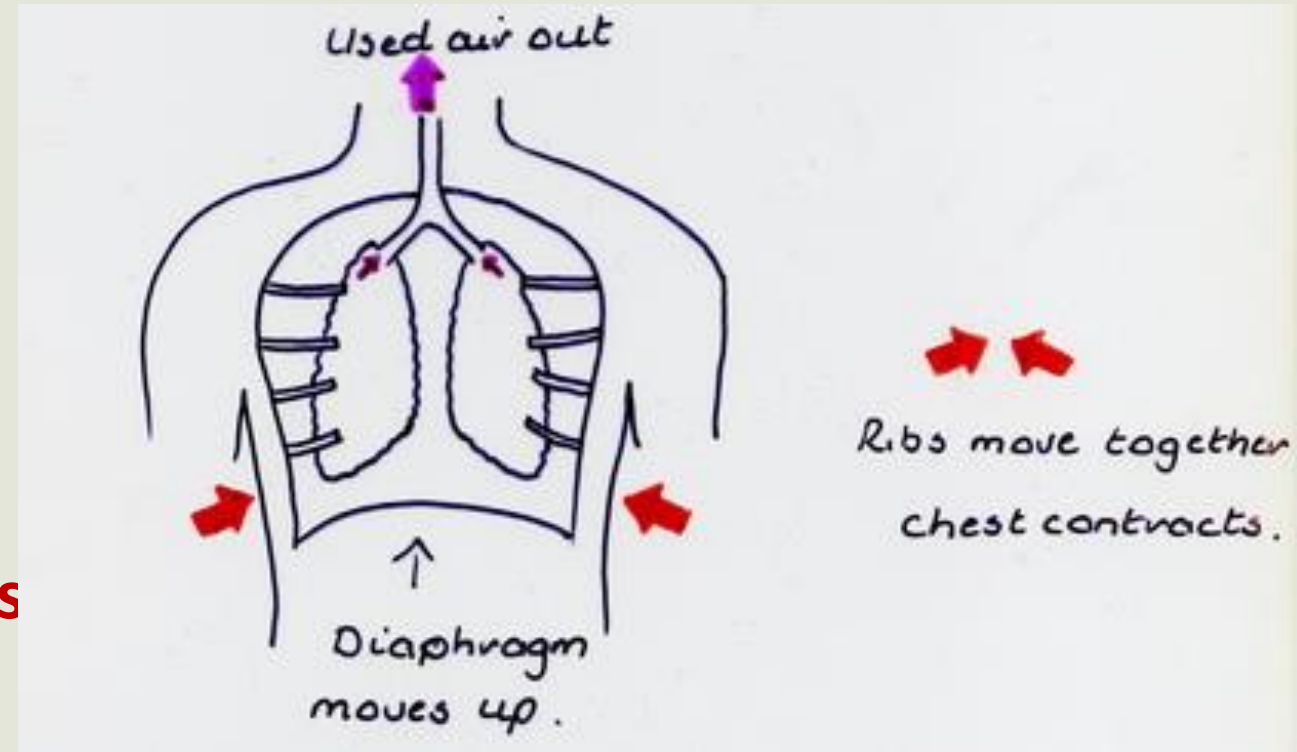 Used air out
Ribs move together
chest contracts.
s
Diaphragm
moves up.